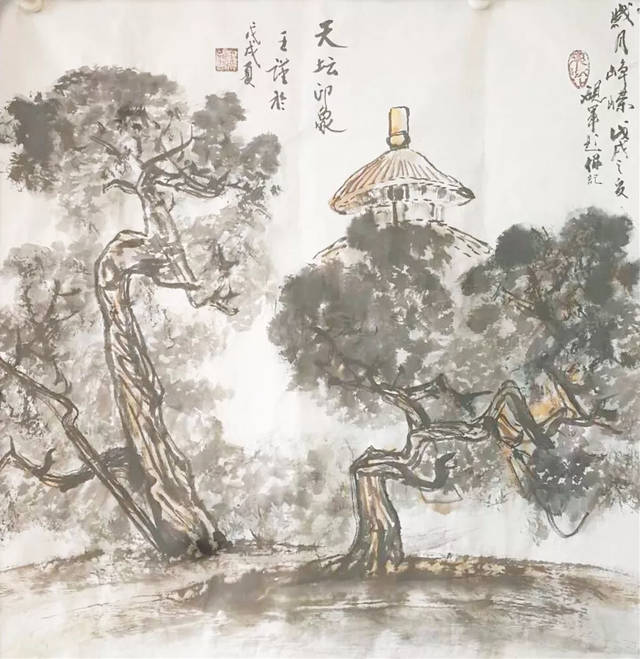 歲月峥嵘戊戌之夏
天坛印象
王谨於
戊戌夏